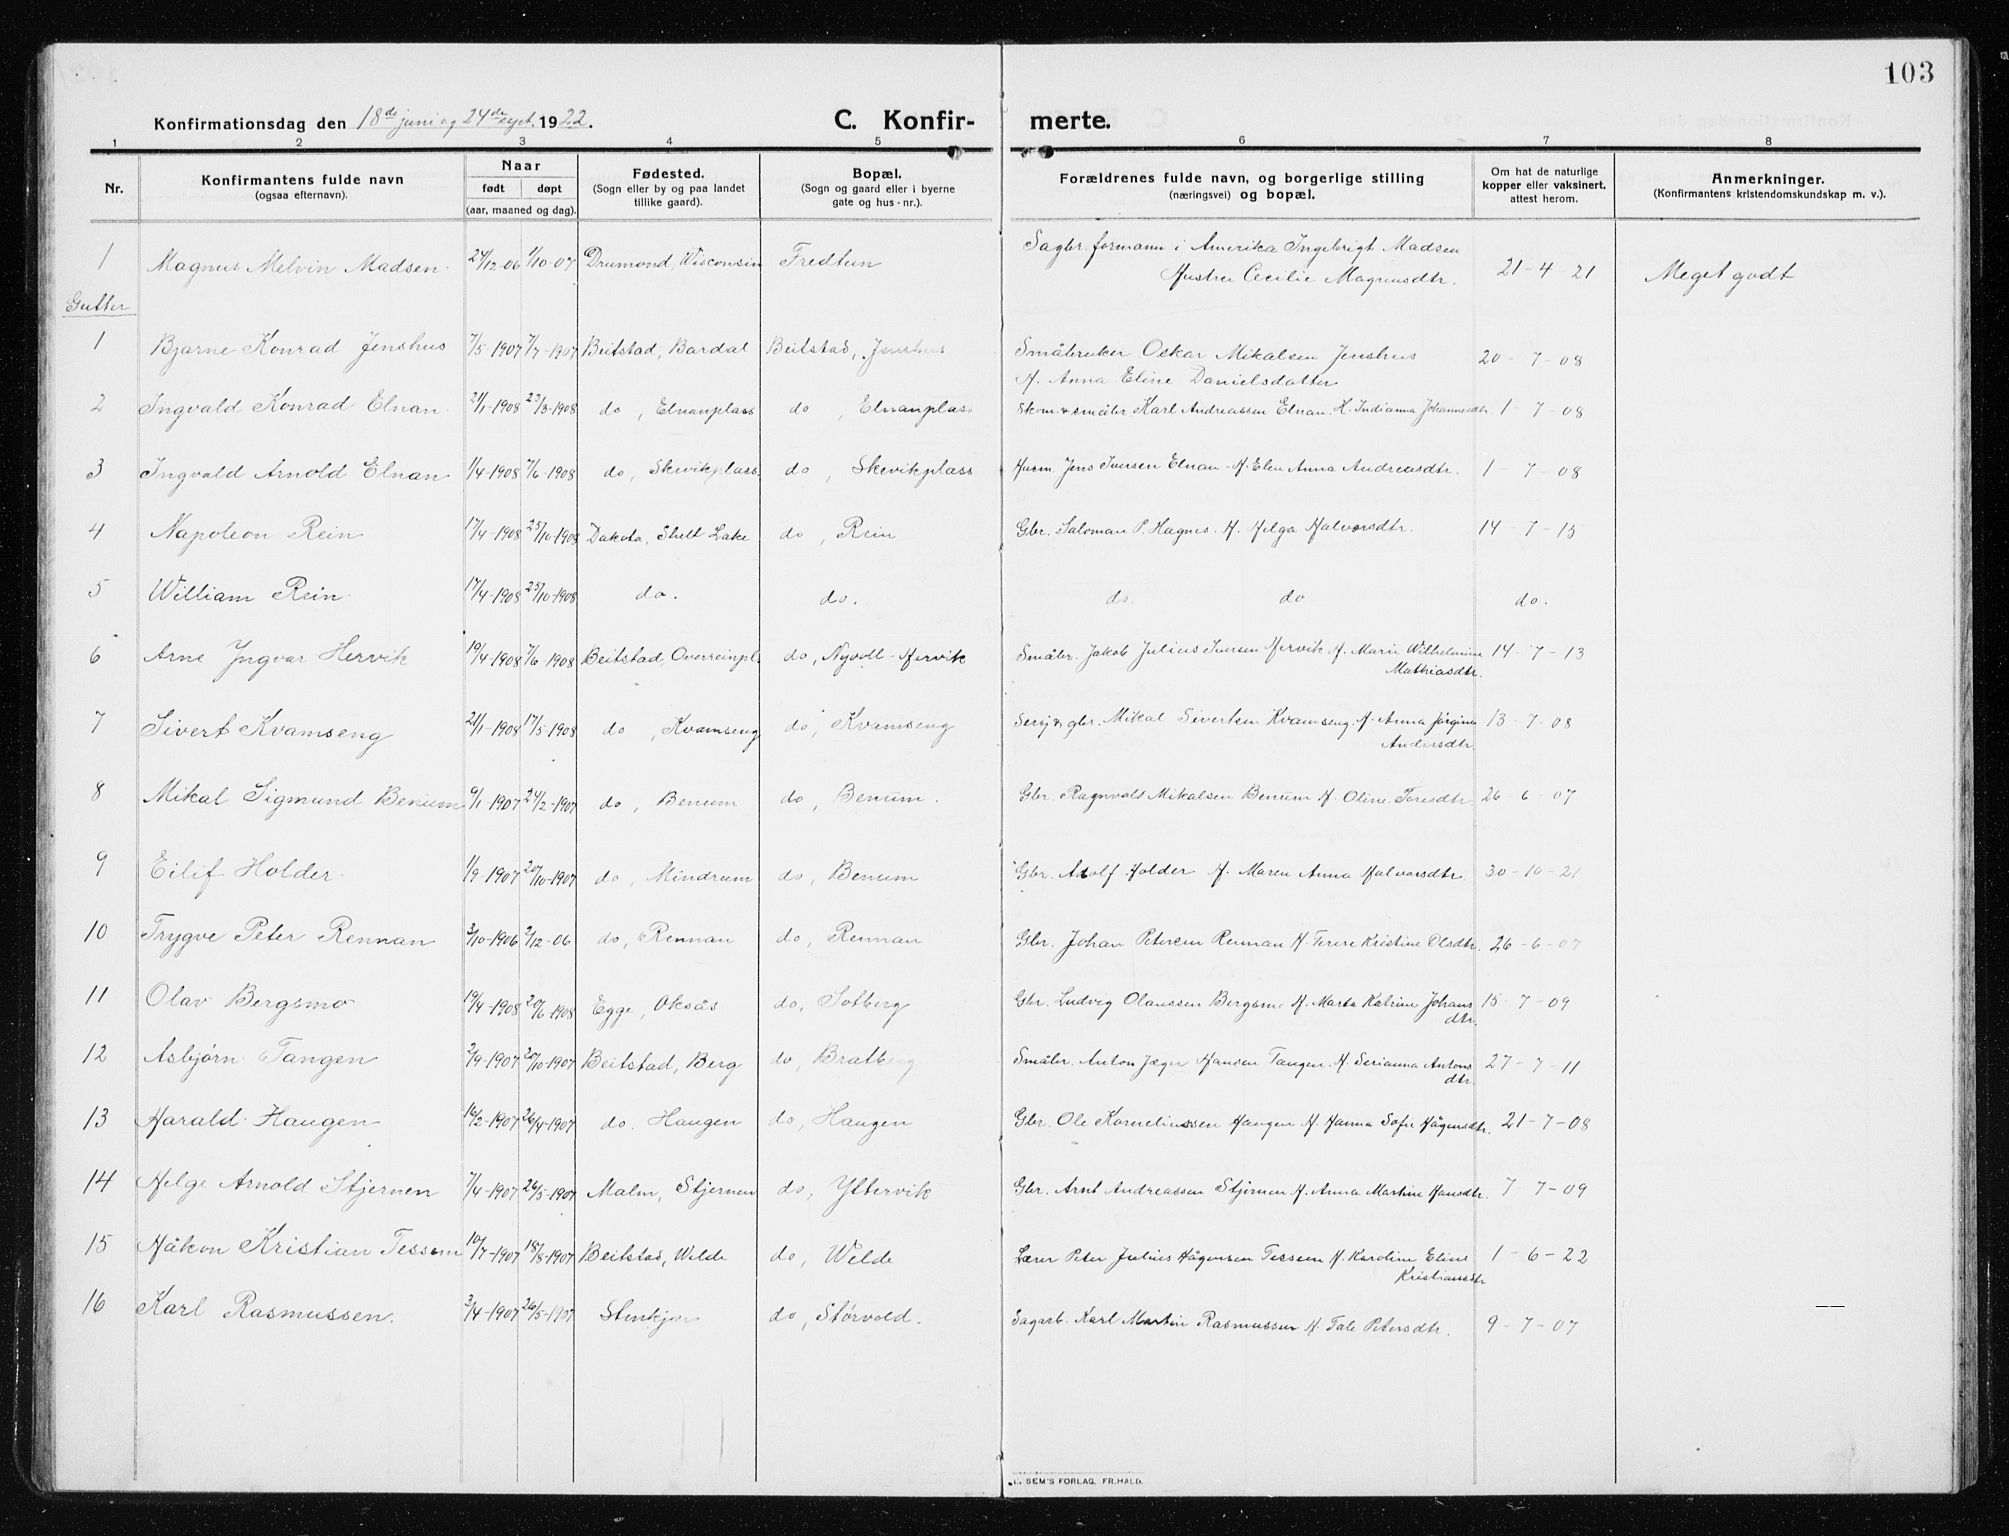 103
Konfirmationsdag den 18de juni og 24de sept. 1922. C. Konfir- merte.
1 2 3 4 5 6 7 8
Nr. Konfirmantens fulde navn (ogsaa efternavn). Naar født døpt (aar, maaned og dag). Fødested. (Sogn eller by og paa landet tillike gaard). Bopæl. (Sogn og gaard eller i byerne gate og hus-nr.). Forældrenes fulde navn, og borgerlige stilling (næringsvei) og bopæl. Om hat de naturlige kopper eller vaksinert, attest herom. Anmerkninger. (Konfirmantens kristendomskundskap m. v.).
1 Magnus Melvin Madsen 24/12-06 1/10-07 Drumond, Wisconsin Fredtun Sagbr. formann i Amerika Ingebrigt Madsen Hustru Cecilie Magnusdtr. 21-4-21 Meget godt
Gutter
1 Bjarne Konrad Jenshus 7/5-1907 7/7-1907 Beitstad, Bardal Beitstad, Jenshus Småbruker Oskar Mikalsen Jenshus H. Anna Eline Danielsdatter 20-7-08
2 Ingvald Konrad Elnan 21/1-1908 23/3-1908 do, Elnanplass do, Elnanplass Skom. & småbr Karl Andreassen Elnan. H. Indianna Johannesdtr. 1-7-08
3 Ingvald Arnold Elnan 1/4-1908 7/6-1908 do, Skevikplass do, Skevikplass Husm. Jens Iversen Elnan H. Elen Anna Andreasdtr. 1-7-08
4 Napoleon Rein 17/4-1908 25/10-1908 Dakota, Shell Lake do, Rein Gbr. Saloman P. Hagnes. H. Helga Halvorsdtr. 14-7-15
5 William Rein 17/4-1908 25/10-1908 do. do. do. do do.
6 Arne Ingvar Hervik 19/4-1908 7/6-1908 Beitstad, Overreinpl. do, Nyvoll-Hervik Småbr. Jakob Julius Iversen Hervik H. Marie Wilhelmine Mathiasdtr. 14-7-13
7 Sivert Kvamseng 21/1-1908 17/5-1908 do, Kvamseng do, Kvamseng Sersj & gbr. Mikal Sivertsen Kvamseng. H. Anna Jørgine Andersdtr. 13-7-08
8 Mikal Sigmund Benum 9/1-1907 24/2-1907 do, Benum do, Benum. Gbr. Ragnvald Mikalsen Benum H. Oline Toresdtr. 26-6-07
9 Eilif Holder 1/9-1907 20/10-1907 do, Mindrum do, Benum Gbr. Adolf Holder H. Maren Anna Halvorsdtr. 30-10-21
10 Trygve Peter Rennan 3/10-1906 2/12-06 do, Rennan do, Rennan Gbr. Johan Petersen Rennan H. Terese Kristine Olsdtr. 26-6-07
11 Olav Bergsmo 19/4-1908 20/6-1908 Egge, Oksås do, Solberg Gbr. Ludvig Olaussen Bergsmo H. Marta Katrine Johansdtr. 15-7-09
12 Asbjørn Tangen 2/9-1907 20/10-1907 Beitstad, Berg do, Bratberg Småbr. Anton Jæger Hansen Tangen. H. Serianna Antonsdtr. 27-7-11
13 Harald Haugen 16/2-1907 26/4-1907 do. Haugen do, Haugen Gbr. Ole Korneliussen Haugen H. Hanna Sofie Hågensdtr. 21-7-08
14 Helge Arnold Stjernen 7/4-1907 26/5-1907 Malm, Stjernen do, Yttervik Gbr. Arnt Andreassen Stjernen H. Anna Martine Hansdtr. 7-7-09
15 Håkon Kristian Tessem 10/7-1907 18/8-1907 Beitstad, Welde do, Welde Lærer Peter Julius Hågensen Tessem H. Karoline Eline Kristiansdtr 1-6-22
16 Karl Rasmussen. 3/4-1907 26/5-1907 Stenkjær do, Størvold. Sagarb. Karl Martin Rasmussen H. Tale Petersdtr. 9-7-07
SEM'S FORLAG, FR.HALD.